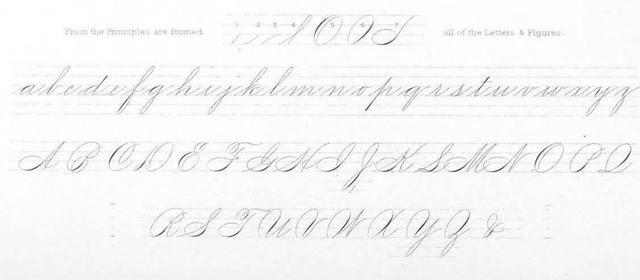 1 2 3 4 5 6 7
From the Principles are formed. all of the Letters & Figures.
a b c d e f g h i j k l m n o p q r s t u v w x y z
A B C D E F G H I J K L M N O P Q
R S T U V W X Y Z &